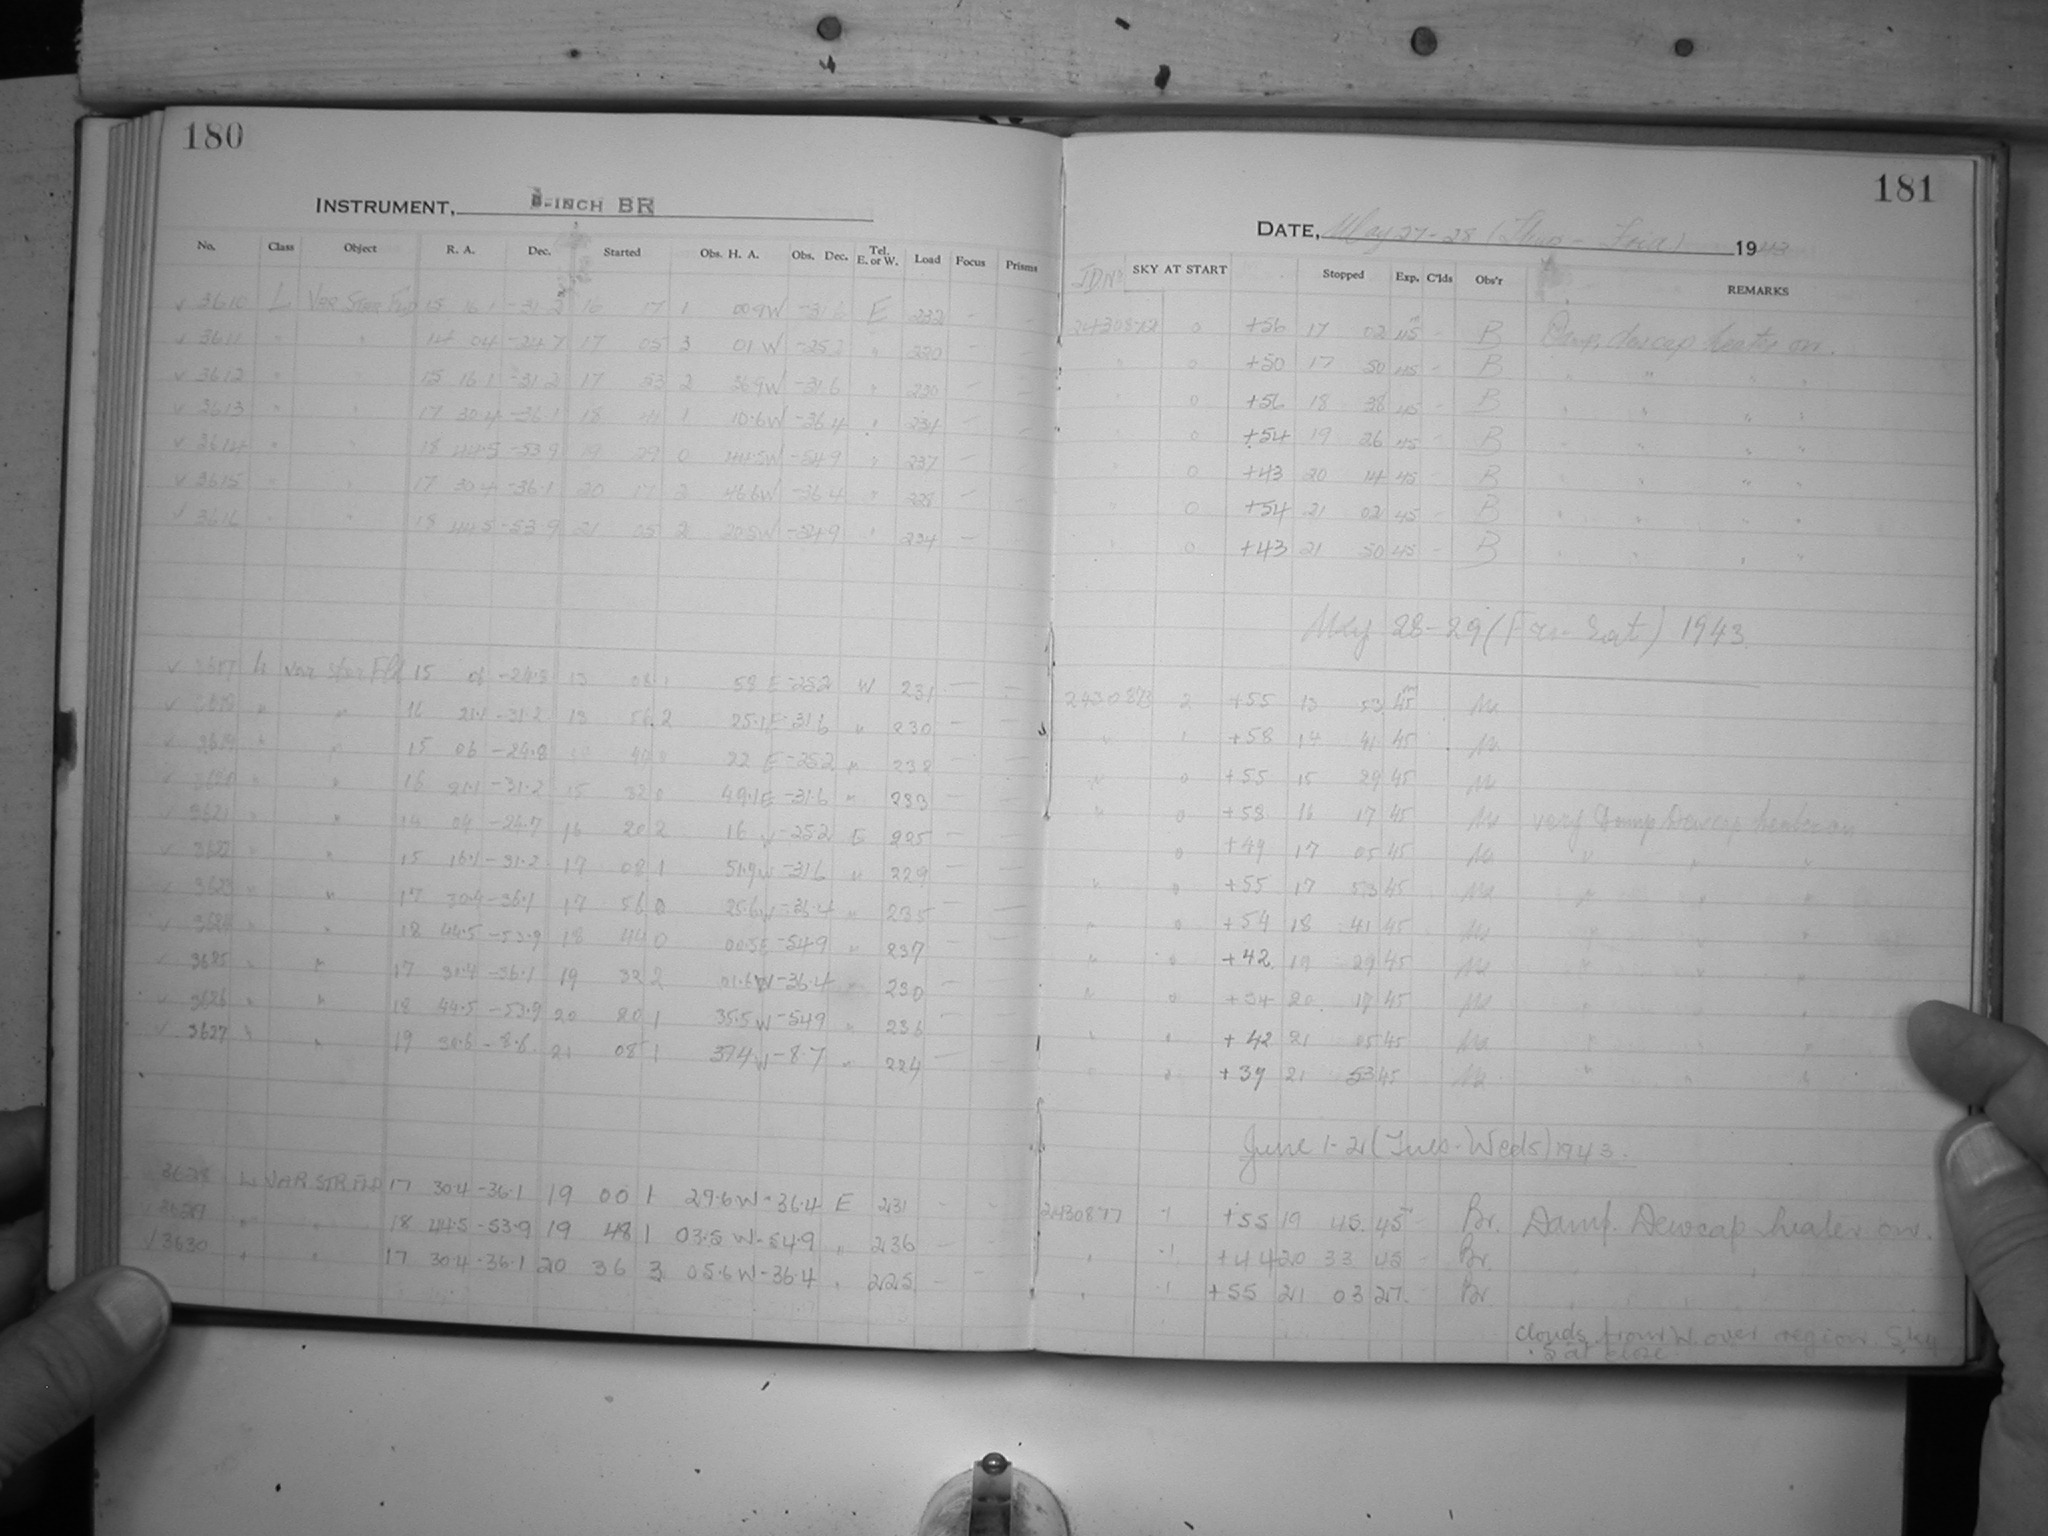 180
INSTRUMENT, -INCH BR
No. Class Object R. A. Dec. Started Obs. H. A. Obs. Dec. Tel. E. or W. Load Focus Prisms
v 3610 L 15 16 1 17 1 00.9W E 232
v 3611 " " 14 04 -24.7 17 05 3 01 W -25.2 " 220
v 3612 " " 15 16.1 -31.2 17 53 2 36.9W -31.6 " 230
v 3613 " " 17 30.4 -36.1 18 41 1 10.6W -36.4 " 231
v 3614 " " 18 44.5 -53.9 19 29 0 44.5W -54.9 " 237
v 3615 " " 17 30.4 -36.1 20 17 46.6W -36.4 " 228
v 3616 " " 18 44.5 -53.9 21 05 2 -54.9 " 234
v 3617 L Var Star Fld 15 06 -24.8 13 08 1 58 E -25.2 W 231
v 3618 " " 16 21.1 -31.2 13 56 2 25.1E -31.6 " 230
v 3619 " " 15 06 -24.8 22 E -25.2 " 238
v 3620 " " 16 21.1 -31.2 15 32 0 49.1E -31.6 " 233
v 3621 " " 14 04 -24.7 16 20 2 16 W -25.2 E 225
3622 " " 15 16.1 -31.2 17 08 1 51.9W -31.6 " 229
3623 " " 17 30.4 -36.1 17 56 0 25.6W -36.4 " 235
v 3624 " " 18 44.5 -53.9 18 44 0 00.5E -54.9 " 237
v 3625 " " 17 30.4 -36.1 19 32 2 01.6W -36.4 " 230
v 3626 " " 18 44.5 -53.9 20 20 1 35.5W -54.9 " 236
v 3627 " " 19 30.6 -8.6 21 08 1 37.4W -8.7 " 224
3628 L VAR STR FLD 17 30.4 -36.1 19 00 1 29.6W -36.4 E 231
3629 " " 18 44.5 -53.9 19 48 1 03.5 W -54.9 " 236
v 3630 " " 17 30.4 -36.1 20 36 3 05.6W -36.4 " 225
181
DATE, May 27-28 (Thurs - Frid) 1943
JDNo SKY AT START Stopped Exp. C'lds Obs'r REMARKS
2430872 0 +56 17 02 45m - B Damp, dewcap heater on.
" 0 +50 17 50 45 - B " " " "
" 0 +56 18 38 45 - B " " " "
" 0 +54 19 26 45 - B " " " "
" 0 +43 20 14 45 - B " " " "
" 0 +54 21 02 45 - B " " " "
" 0 +43 21 50 45 - B " " " "
May 28-29 (Fri-Sat) 1943
2430873 2 +55 13 53 45m
" 1 +58 14 41 45
" 0 +55 15 29 45
" 0 +58 16 17 45 very Damp Dewcap heater on
0 +49 17 05 45 " " "
" 0 +55 17 53 45 " " "
" 0 +54 18 41 45 " " "
" 0 +42 19 29 45 " " "
" 0 +54 20 17 45 " " "
" +42 21 05 45 " " "
" +37 21 53 45 " " "
June 1-2 (Tues-Weds) 1943.
2430877 -1 +55 19 45 45m - Br. Damp. Dewcap heater on.
" -1 +44 20 33 45 - Br.
" -1 +55 21 03 27. - Br.
clouds from W. over region. Sky
5 at close.